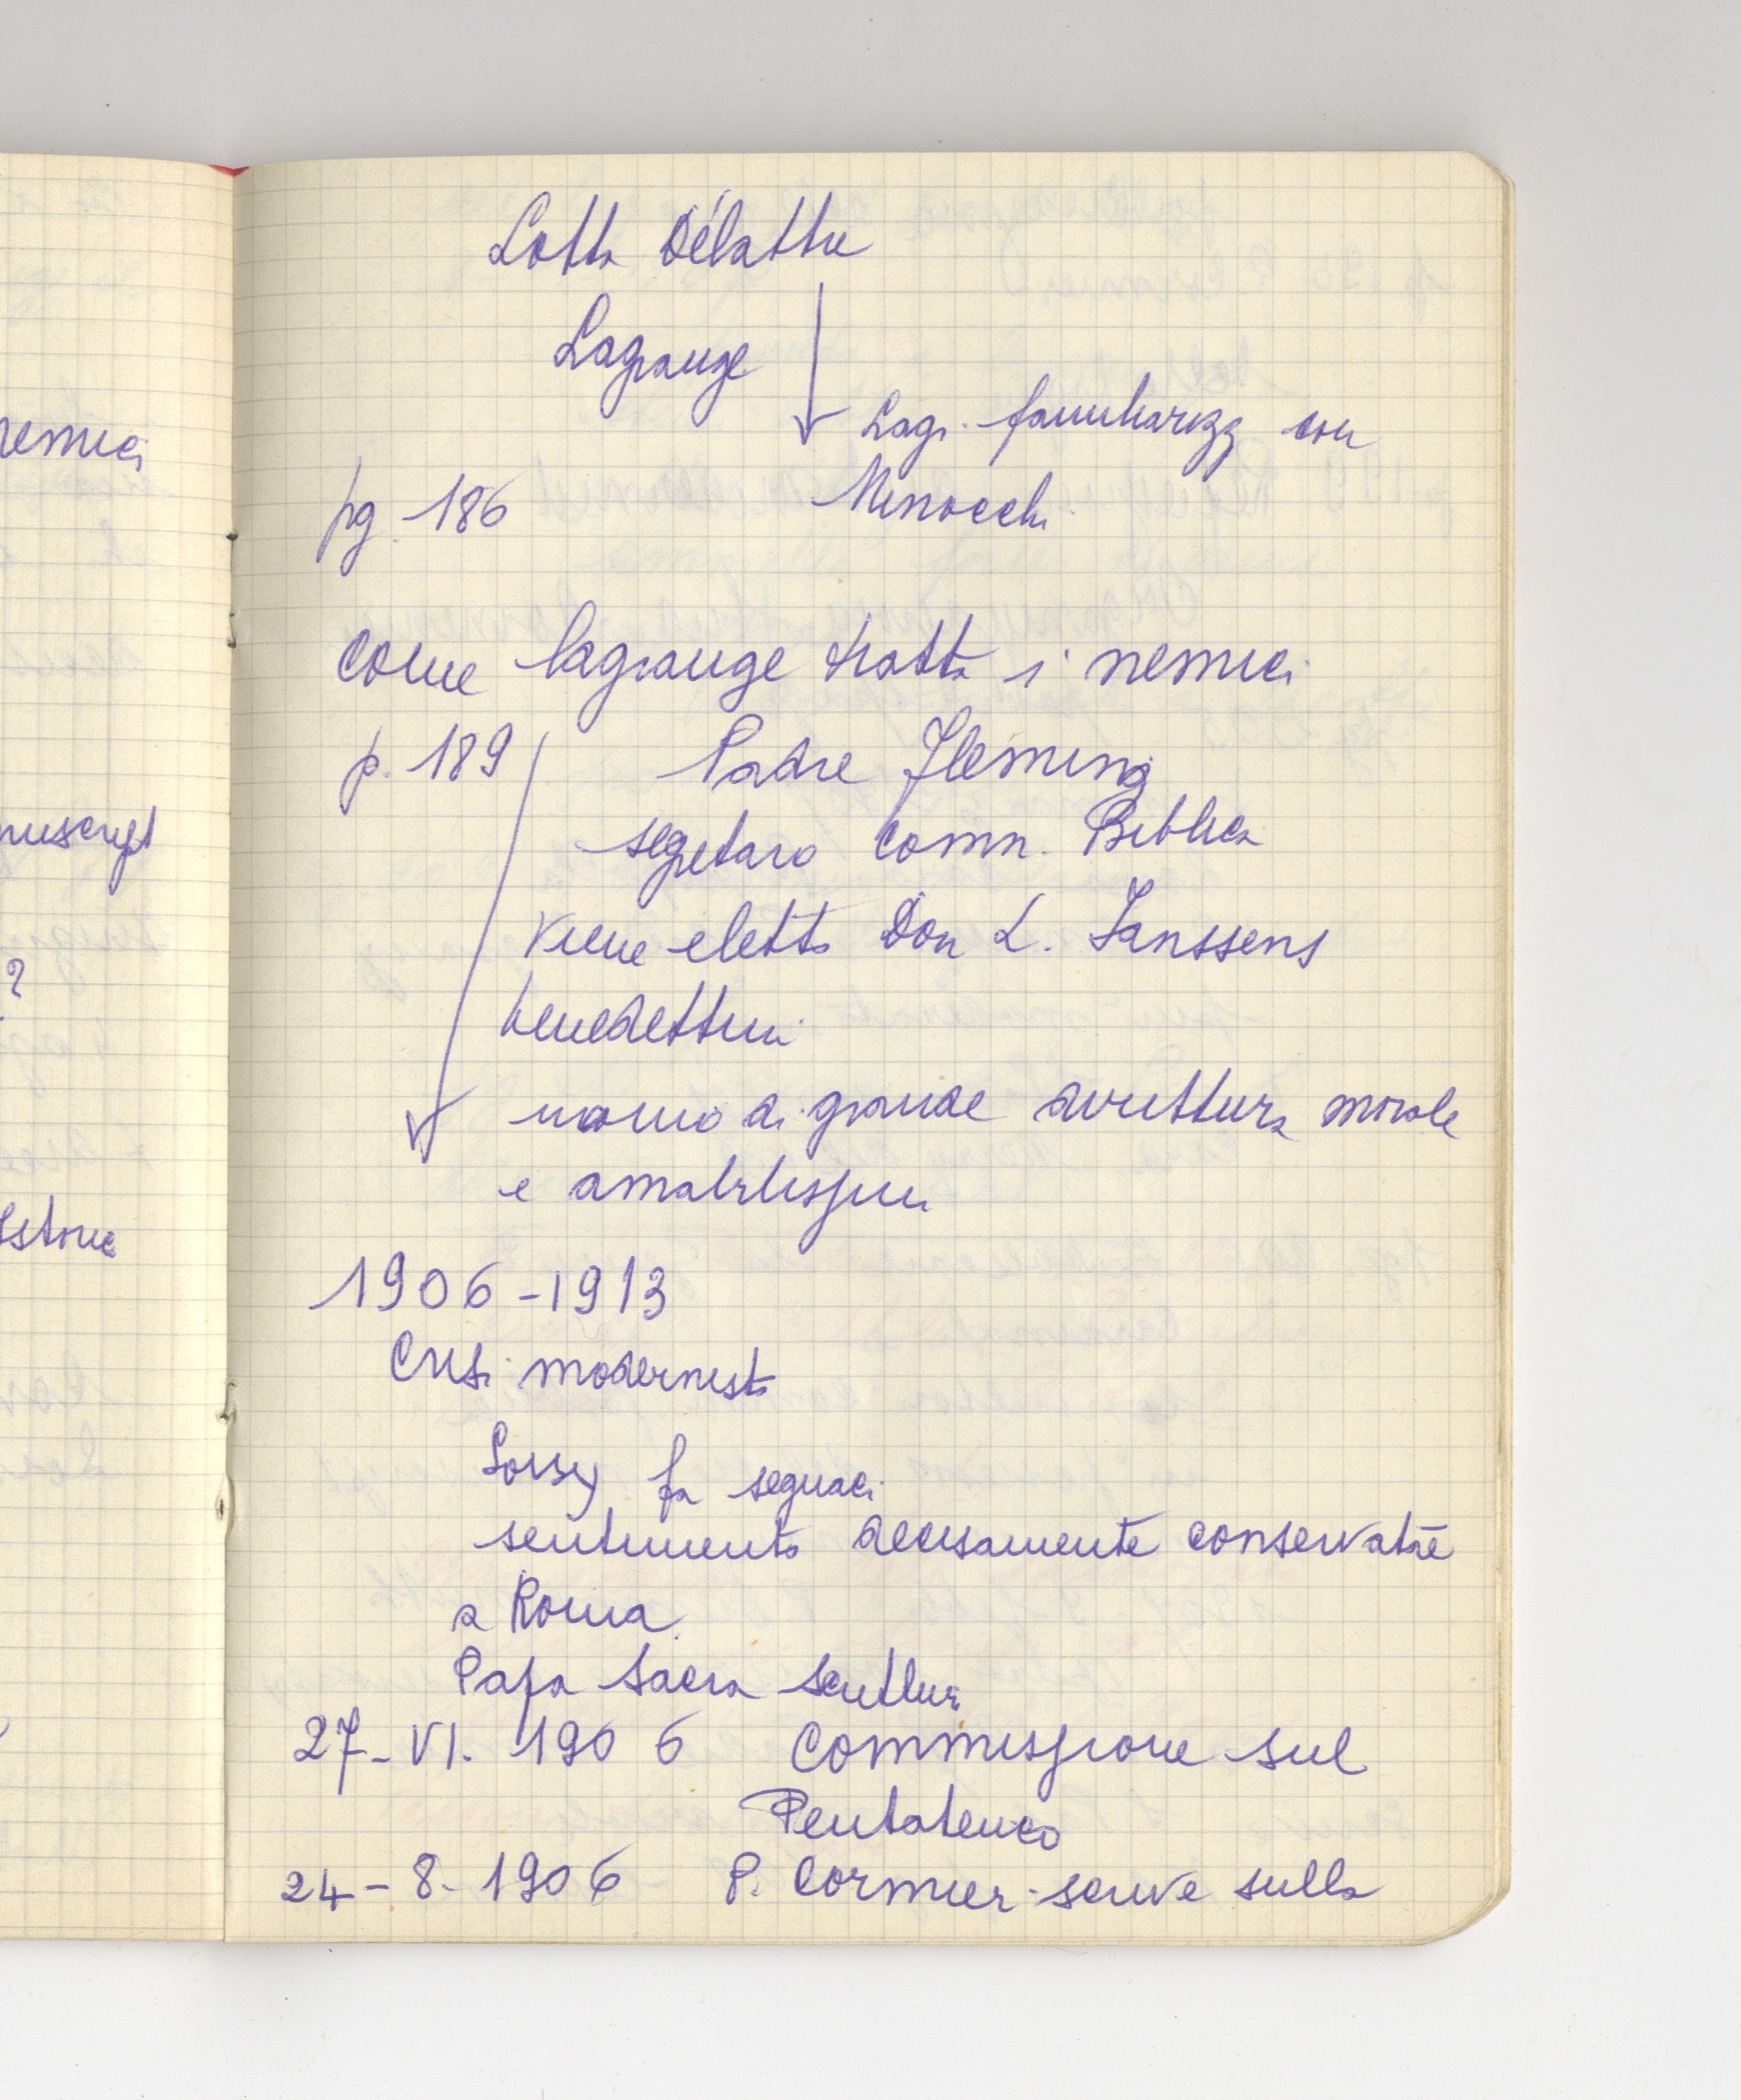 nemici
manuscript
?
Lotta Délattre
Lagrange
Lagr. familiarizz con
pg. 186 Minocchi
Come lagrange tratta i nemici
p. 189 Padre Fleming
segretario Comm. Biblica
viene eletto Don L. Janssens
benedettini
uomo di grande dirittura morale
e amabilissimi
1906-1913
Crisi modernista
Loisy fa seguaci
sentimento decisamente conservatore
a Roma.
Papa Sacra Scrittura
27-VI. 1906 Commissione sul
Pentateuco
24-8-1906 P. Cormier scrive sulla